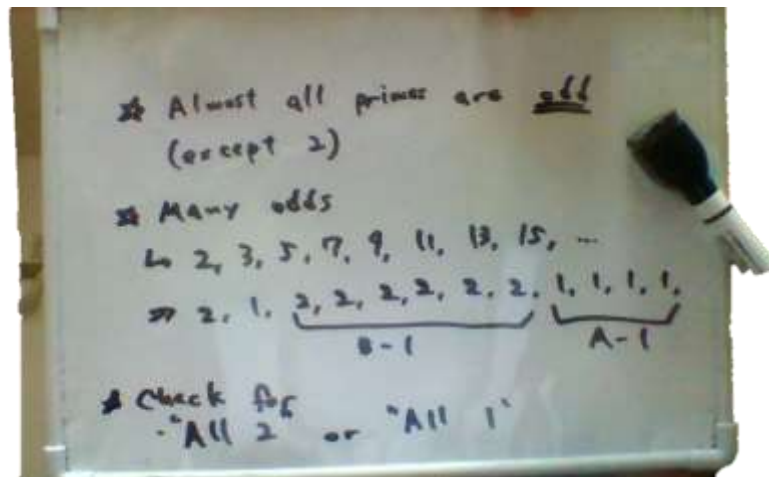 ☆ Almost all primes are odd
(except 2)
☆ Many odds
↳ 2, 3, 5, 7, 9, 11, 13, 15, ...
⇒ 2, 1, 2, 2, 2, 2, 2, 2, 1, 1, 1, 1,
B-1 A-1
☆ Check for
-"All 2" or "All 1"